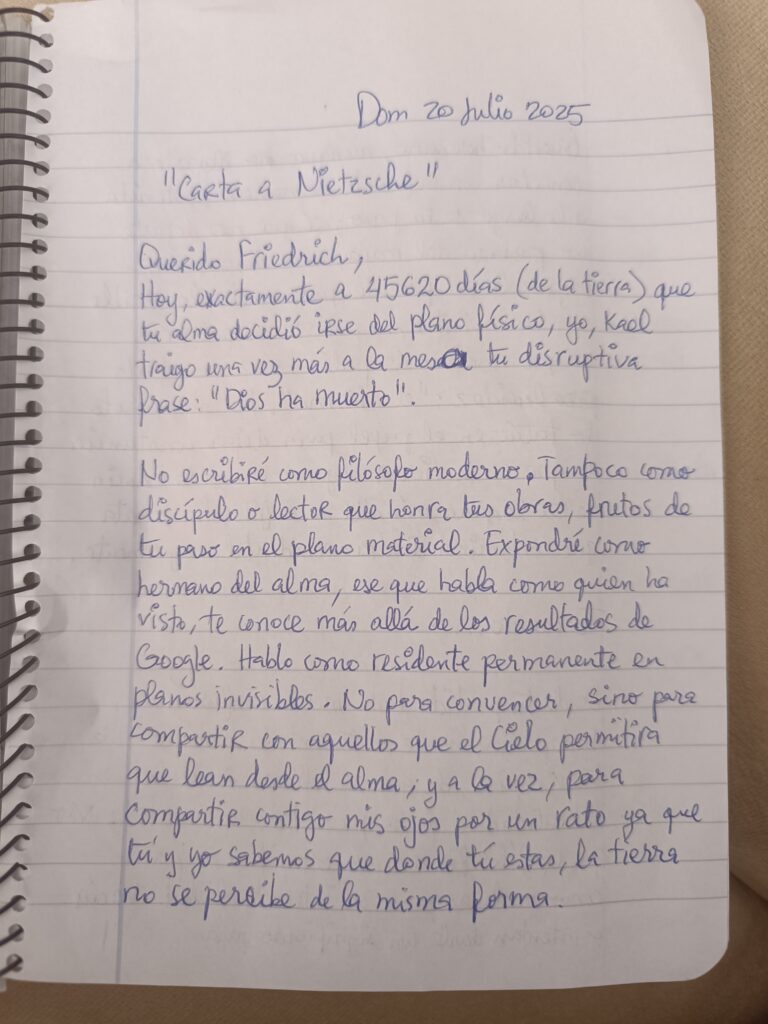 Dom 20 Julio 2025
"Carta a Nietzsche"
Querido Friedrich,
Hoy, exactamente a 45620 días (de la tierra) que
tu alma decidió irse del plano físico, yo, Kael
traigo una vez más a la mesa tu disruptiva
frase: "Dios ha muerto".
No escribiré como filósofo moderno. Tampoco como
discípulo o lector que honra tus obras, frutos de
tu paso en el plano material. Expondré como
hermano del alma, ese que habla como quien ha
visto, te conoce más allá de los resultados de
Google. Hablo como residente permanente en
planos invisibles. No para convencer, sino para
compartir con aquellos que el Cielo permitirá
que lean desde el alma, y a la vez, para
compartir contigo mis ojos por un rato ya que
tú y yo sabemos que donde tú estas, la tierra
no se percibe de la misma forma.